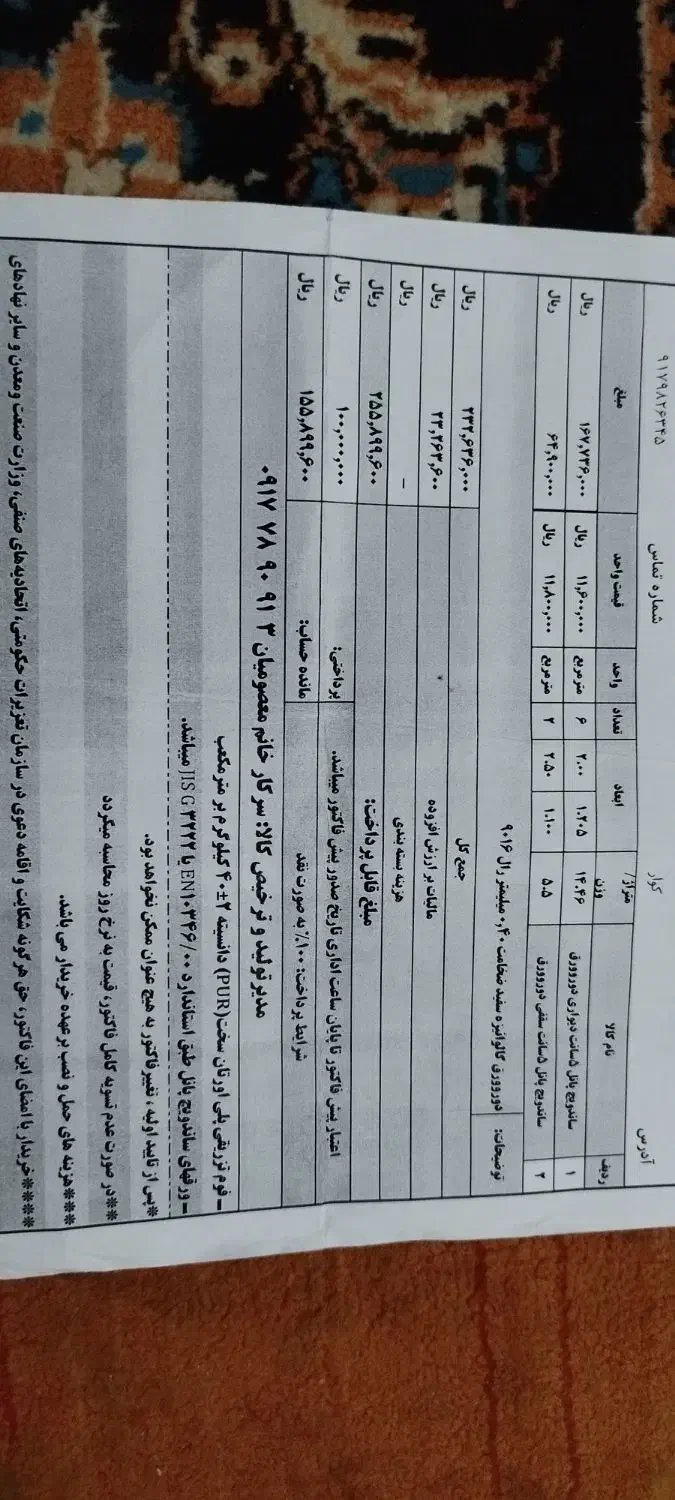 آدرس کوار شماره تماس ۹۱۷۹۸۲۶۳۴۵
ردیف نام کالا متراژ/وزن ابعاد تعداد واحد قیمت واحد مبلغ
۱ ساندویچ پانل ۵سانت دیواری دوروورق ۱۴.۴۶ ۱.۲۰۵ ۲.۰۰ ۶ مترمربع ۱۱,۶۰۰,۰۰۰ ریال ۱۶۷,۷۳۶,۰۰۰ ریال
۲ ساندویچ پانل ۵سانت سقفی دوروورق ۵.۵ ۱.۱۰۰ ۲.۵۰ ۲ مترمربع ۱۱,۸۰۰,۰۰۰ ریال ۶۴,۹۰۰,۰۰۰ ریال
توضیحات: دوروورق گالوانیزه سفید ضخامت ۰,۴۰ میلیمتر رال ۹۰۱۶
جمع کل ۲۳۲,۶۳۶,۰۰۰ ریال
مالیات بر ارزش افزوده ۲۳,۲۶۳,۶۰۰ ریال
هزینه بسته بندی - ریال
مبلغ قابل پرداخت: ۲۵۵,۸۹۹,۶۰۰ ریال
اعتبار پیش فاکتور تا پایان ساعت اداری تاریخ صدور پیش فاکتور میباشد. پرداختی: ۱۰۰,۰۰۰,۰۰۰ ریال
شرایط پرداخت: ۱۰۰٪ به صورت نقد مانده حساب: ۱۵۵,۸۹۹,۶۰۰ ریال
مدیر تولید و ترخیص کالا: سرکار خانم معصومیان ۳ ۹۱ ۹۰ ۷۸ ۰۹۱۷
ـ فوم تزریقی پلی اورتان سخت(PUR) دانسیته ۲±۴۰ کیلوگرم بر مترمکعب
ـ ورقهای ساندویچ پانل طبق استاندارد EN۱۰۳۴۶/۰۰ یا JIS G ۳۲۲۲ میباشد.
*پس از تایید اولیه ، تغییر فاکتور به هیچ عنوان ممکن نخواهد بود.
**در صورت عدم تسویه کامل فاکتور، قیمت به نرخ روز محاسبه میگردد
***هزینه های حمل و نصب بر عهده خریدار می باشد.
****خریدار با امضای این فاکتور، حق هر گونه شکایت و اقامه دعوی در سازمان تعزیرات حکومتی، اتحادیه‌های صنفی، وزارت صنعت و معدن و سایر نهادهای